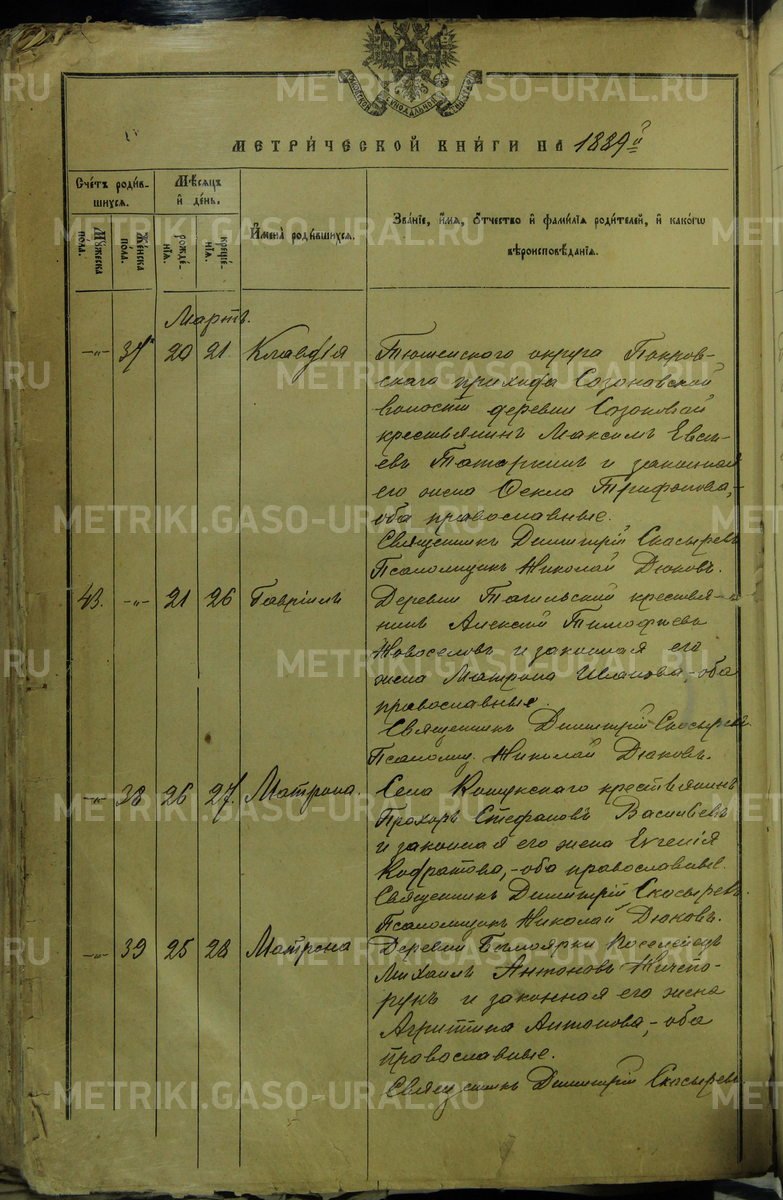 МЕТРИ́ЧЕСКОЙ КНИ́ГИ НА 1889й
Сче́тъ роди́в-
шихся.
Мѣ́сяцъ
и҆ де́нь.
Мꙋ́жеска
пола.
Же́нска
пола.
рожде́-
нїѧ.
креще́-
нїѧ.
И҆мена̀ роди́вшихся.
Зва́нїе, и҆́мѧ, ѻ҆́тчество и҆ фами́лїѧ роди́телей, и҆ како́гѡ
вѣроисповѣ́данїѧ.
Мартъ.
-"- 37 20 21 Клавдія
Тюменскаго округа Покров-
скаго прихода Созоновской
волости деревни Созоновой
крестьянинъ Максимъ Евсѣ-
евъ Татаркинъ и законная
его жена Ѳекла Трифонова,-
оба православные.
Священникъ Димитрій Скосыревъ
Псаломщикъ Николай Дюковъ.
43. -"- 21 26 Гавріилъ
Деревни Тагильской крестья-
нинъ Алексій Тимофѣевъ
Новоселовъ и законная его
жена Матрона Иванова,-оба
православные.
Священникъ Димитрій Скосыревъ
Псаломщ. Николай Дюковъ.
-"- 38 26 27. Матрона.
Села Кошукскаго крестьянинъ
Прохоръ Стефановъ Васильевъ
и законная его жена Евгенія
Кодратова,-оба православные.
Священникъ Димитрій Скосыревъ.
Псаломщикъ Николай Дюковъ.
-"- 39 25 28 Матрона
Деревни Бѣлоярки поселенецъ
Михаилъ Антоновъ Ничепо-
рукъ и законная его жена
Агриппина Антонова,-оба
православные.
Священникъ Димитрій Скосыревъ.
METRIKI.GASO-URAL.RU